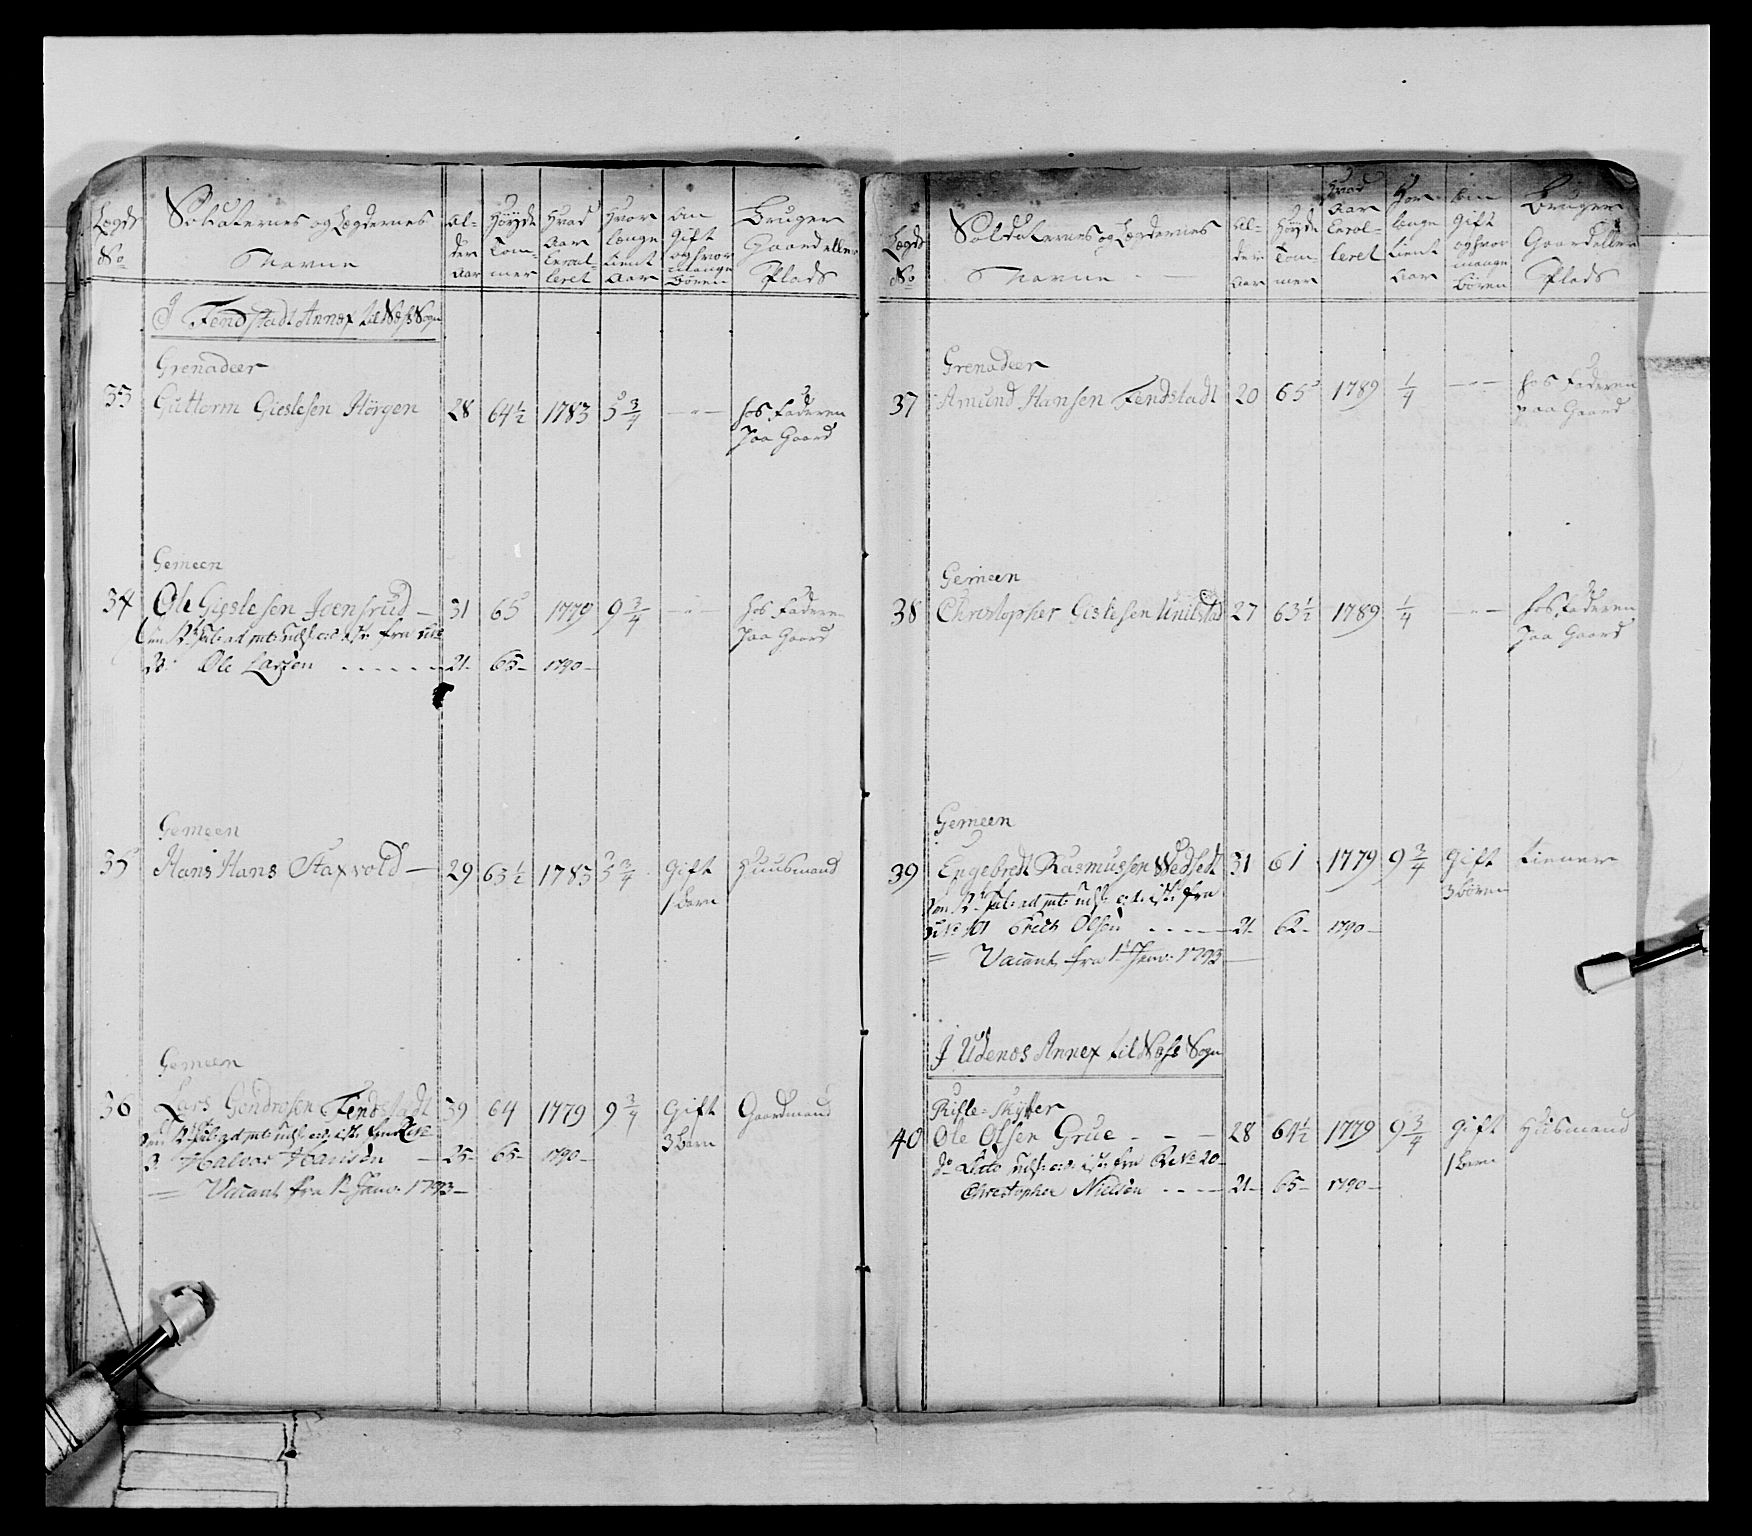 Lægds No
Soldaternes og Lægdernes Navne
Al-der Aar
Høyde Tom-mer
Hvad Aar Enroul-leret
Hvor længe tient Aar
Om Gift og hvor mange Børen
Bruger Gaard eller Plads
I Fendstadt Annex til Næss Sogn
Grenadeer
33 Guttorm Gieslesen Hörgen 28 64½ 1783 5¾ — " — hos Faderen
paa Gaard
Gemeen
34 Ole Gieslesen Jvensrud — 31 65 1779 9¾ — " — hos Faderen
paa Gaard
fra
Ole Larsen - - - - - 21- 65- 1790-
Gemeen
35 Hans Hans Staxvold — 29 63½ 1783 5¾ Gift Huusmand
1 barn
Gemeen
36 Lars Gendrosen Fendstadt 39 64 1779 9¾ Gift Gaardmand
3 barn
3. Halvor Hansen — 25- 65- 1790-
= Vacant fra 1 Janv: 1793-
Lægds No
Soldaternes og Lægdernes Navne
Al-der Aar
Høyde Tom-mer
Hvad Aar Enrol-leret
Hvor længe tient Aar
Om Gift og hvor mange Børen
Bruger Gaard eller Plads
Grenadeer
37 Amund Hansen Fendstadt 20 65 1789 ¼ — " — hos Faderen
paa Gaard
Gemeen
38 Christopher Gislesen Unelstad 27 63½ 1789 ¼ — " — hos Faderen
paa Gaard
Gemeen
39 Engebredt Rasmussen Wedsedt 31 61 1779 9¾ Gift tiener
3 börn
fra
No 101 Erich Olsen - - - - 21- 62- 1790-
= Vacant fra 1 Janv: 1793 —
I Udenos Annex til Næss Sogn
Rifle-Skytter
40 Ole Olsen Grue - - - 28 64½ 1779 9¾ gift Husmand
1 barn
do Dito fra No 20
Christopher Nielsen - - - - 21- 65- 1790-